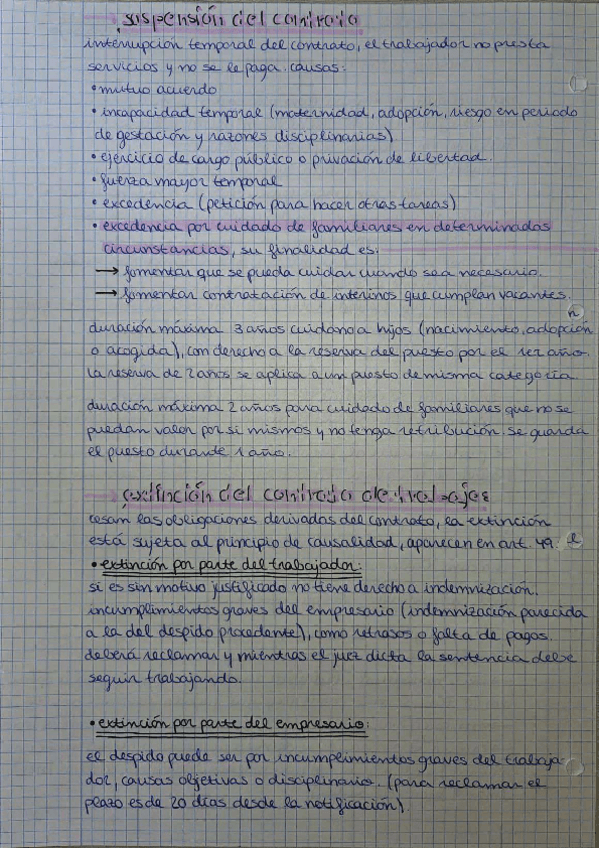 suspensión del contrato
interrupción temporal del contrato, el trabajador no presta
servicios y no se le paga. causas:
• mutuo acuerdo
• incapacidad temporal (maternidad, adopción, riesgo en periodo
de gestación y razones disciplinarias)
• ejercicio de cargo público o privación de libertad.
• fuerza mayor temporal
• excedencia (petición para hacer otras tareas)
• excedencia por cuidado de familiares en determinadas
circunstancias, su finalidad es:
→ fomentar que se pueda cuidar cuando sea necesario.
→ fomentar contratación de interinos que cumplan vacantes.
duración máxima 3 años cuidano a hijos (nacimiento, adopción
o acogida), con derecho a la reserva del puesto por el 1er año.
la reserva de 2 años se aplica a un puesto de misma categoría.
duración máxima 2 años para cuidado de familiares que no se
puedan valer por si mismos y no tenga retribución. se guarda
el puesto durante 1 año.
extinción del contrato de trabajo:
cesan las obligaciones derivadas del contrato, la extinción
está sujeta al principio de causalidad, aparecen en art. 49.
• extinción por parte del trabajador:
si es sin motivo justificado no tiene derecho a indemnización.
incumplimientos graves del empresario (indemnización parecida
a la del despido procedente), como retrasos o falta de pagos.
deberá reclamar y mientras el juez dicta la sentencia debe
seguir trabajando.
• extinción por parte del empresario:
el despido puede ser por incumplimientos graves del trabaja-
dor, causas objetivas o disciplinario. (para reclamar el
plazo es de 20 días desde la notificación)